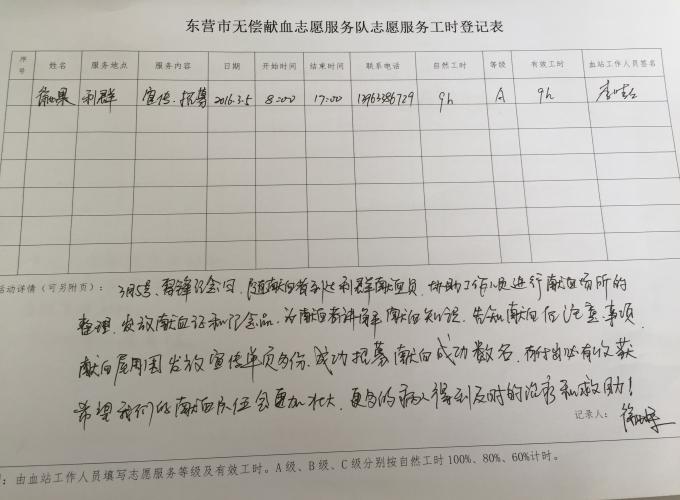 东营市无偿献血志愿服务队志愿服务工时登记表
序号 姓名 服务地点 服务内容 日期 开始时间 结束时间 联系电话 自然工时 等级 有效工时 血站工作人员签名
利群 宣传、招募 2016.3.5 8:00 17:00 13963386729 9h A 9h
活动详情(可另附页): 3月5号、雷锋纪念日、随献血者到达利群献血点、协助工作人员进行献血场所的
整理、发放献血证和纪念品、为献血者讲解献血知识、告知献血后注意事项、
献血屋周围发放宣传单页多份、成功招募献血成功数名、有付出必有收获
希望我们的献血队伍会更加壮大、更多的病人得到及时的治疗和救助!
记录人:
:由血站工作人员填写志愿服务等级及有效工时。A级、B级、C级分别按自然工时100%、80%、60%计时。